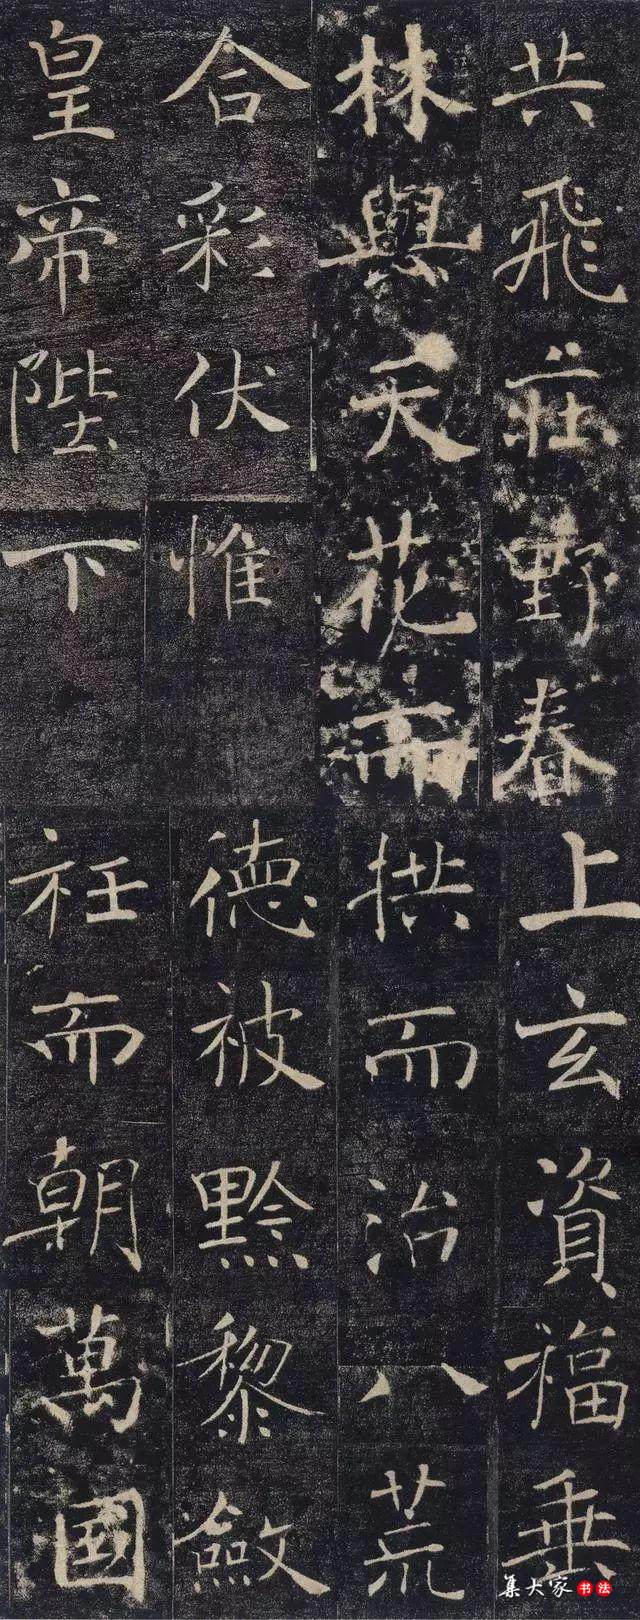 共飛莊野春
林與天花而
合彩伏惟
皇帝陛下
上玄資福垂
拱而治八荒
德被黔黎斂
衽而朝萬國
集大家书法